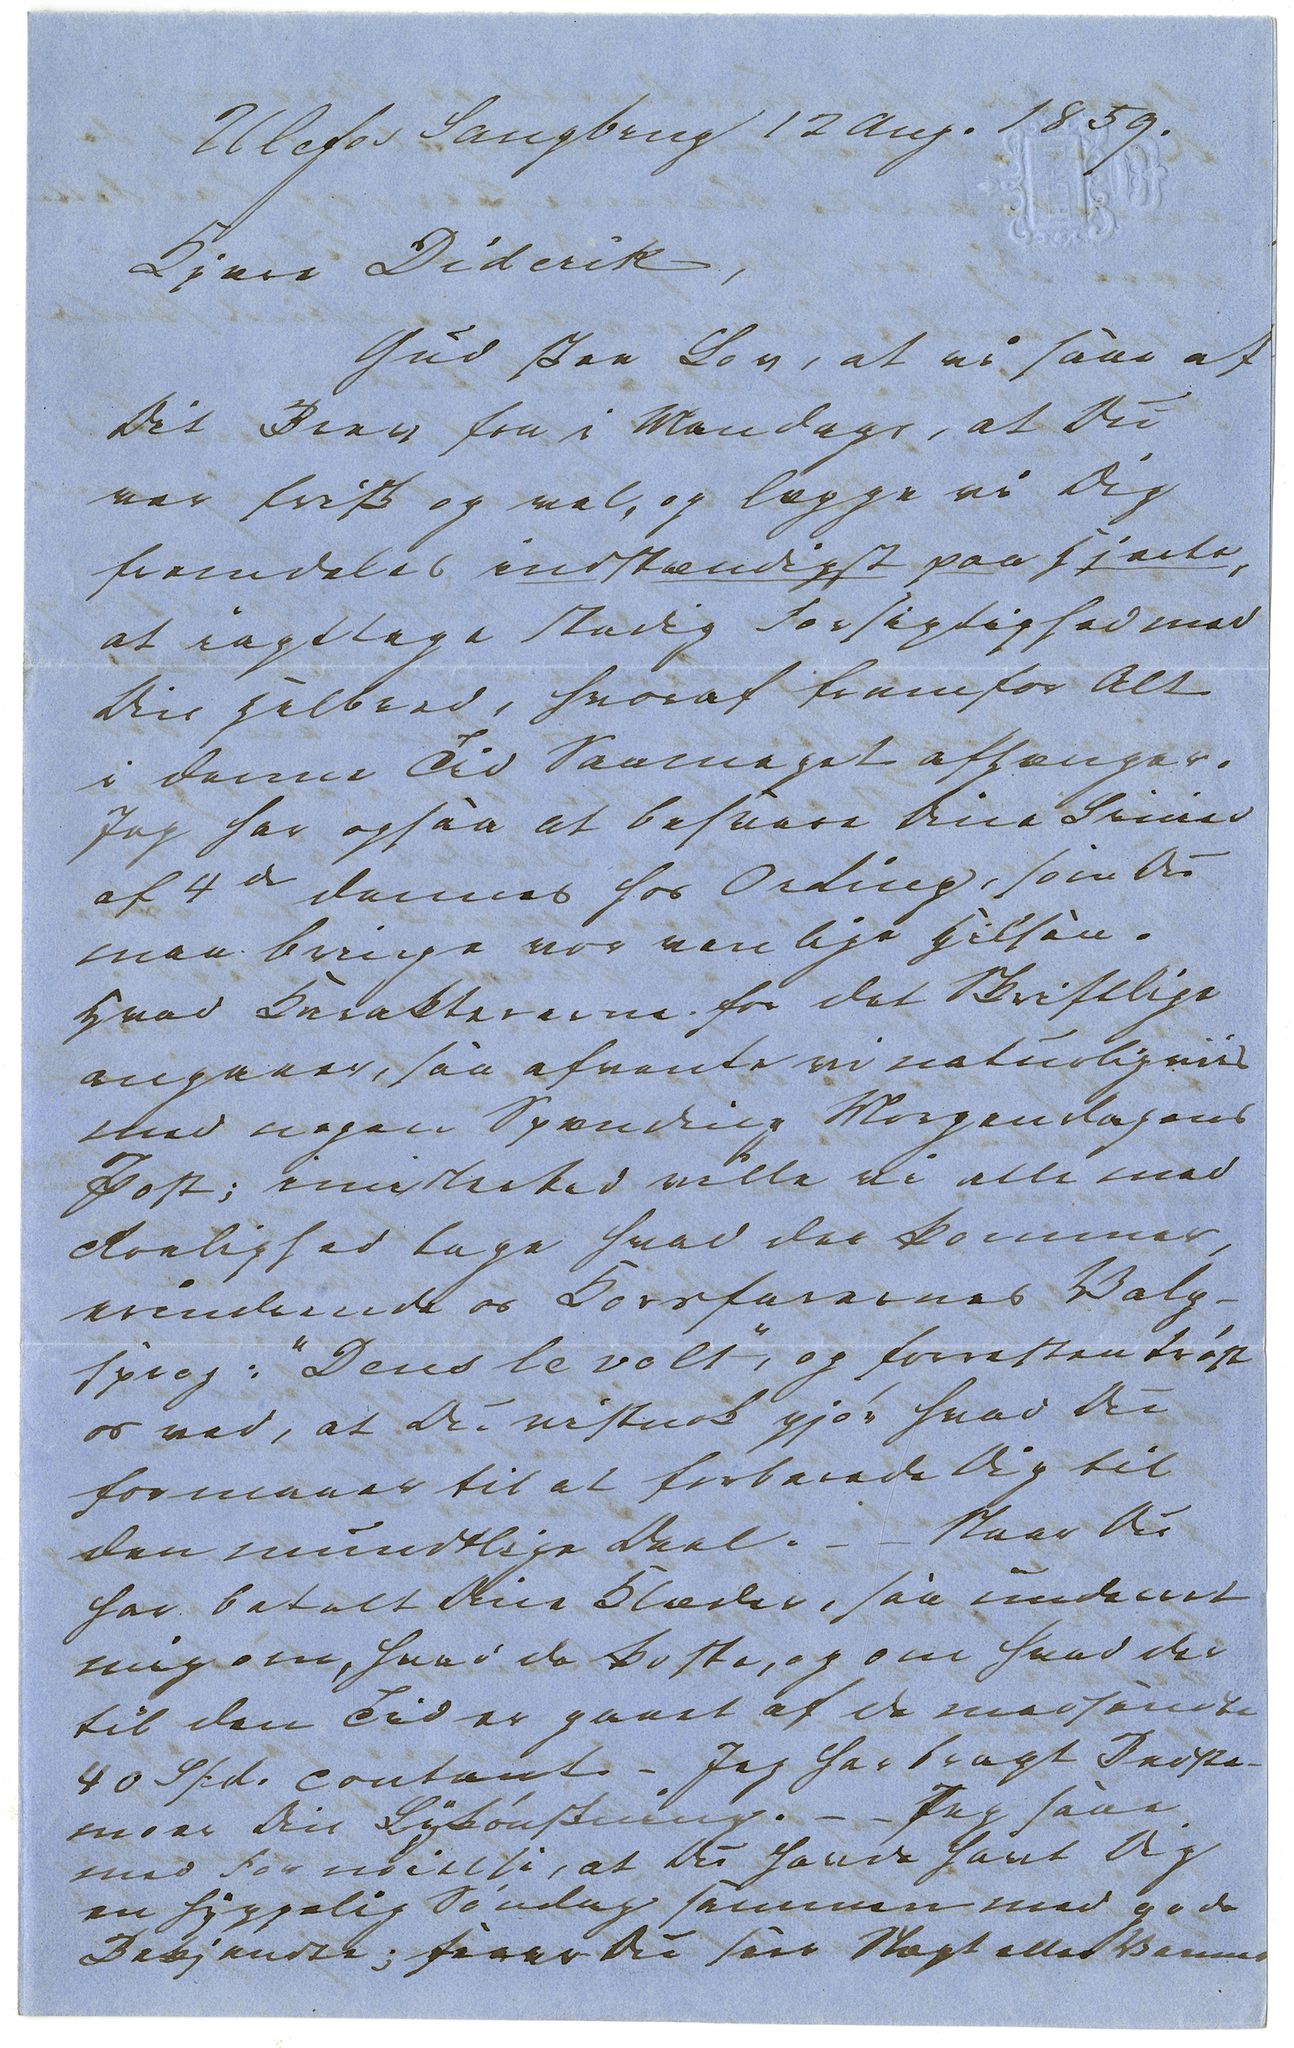 Ulefos Sangbrug 12 Aug. 1859.
Kjære Diderik,
Gud skee Lov, at vi saae af
Dit Brev fra i Mandags, at Du
var frisk og vel, og lægge vi Dig
fremdeles indstændigst paa Hjerte,
at iagttage stadig Forsigtighed med
Din Helbred, hvoraf fremfor Alt
i denne Tid saameget afhænger.
Jeg har ogsaa at besvare Dine Linier
af 4de dennes for Ording, som Du
maa bringe vor venlige Hilsen.
Hvad Karaktererne for det Skriftlige
angaaer, saa afvente vi naturligviis
med nogen Spænding Morgendagens
Post; imidlertid ville vi alle med
Rolighed tage hvad der kommer,
erindrende os Korsfarernes Valg-
sprog: "Deus le volt", og forresten trøste
os ved, at Du vistnok gjør hvad Du
formaaer til at forberede Dig til
den mundtlige Deel. — Naar Du
har betalt Dine Klæder, saa underret
mig om, hvad de koste, og om hvad der
til den Tid er gaaet af de medsendte
40 Spd. contant. — Jeg har bragt Bedste-
moer Din Lykønskning. — Jeg saae
med Fornøielse, at Du havde havt Dig
en hyggelig Søndag sammen med gode
Bekjendte; Du seer Vægt eller